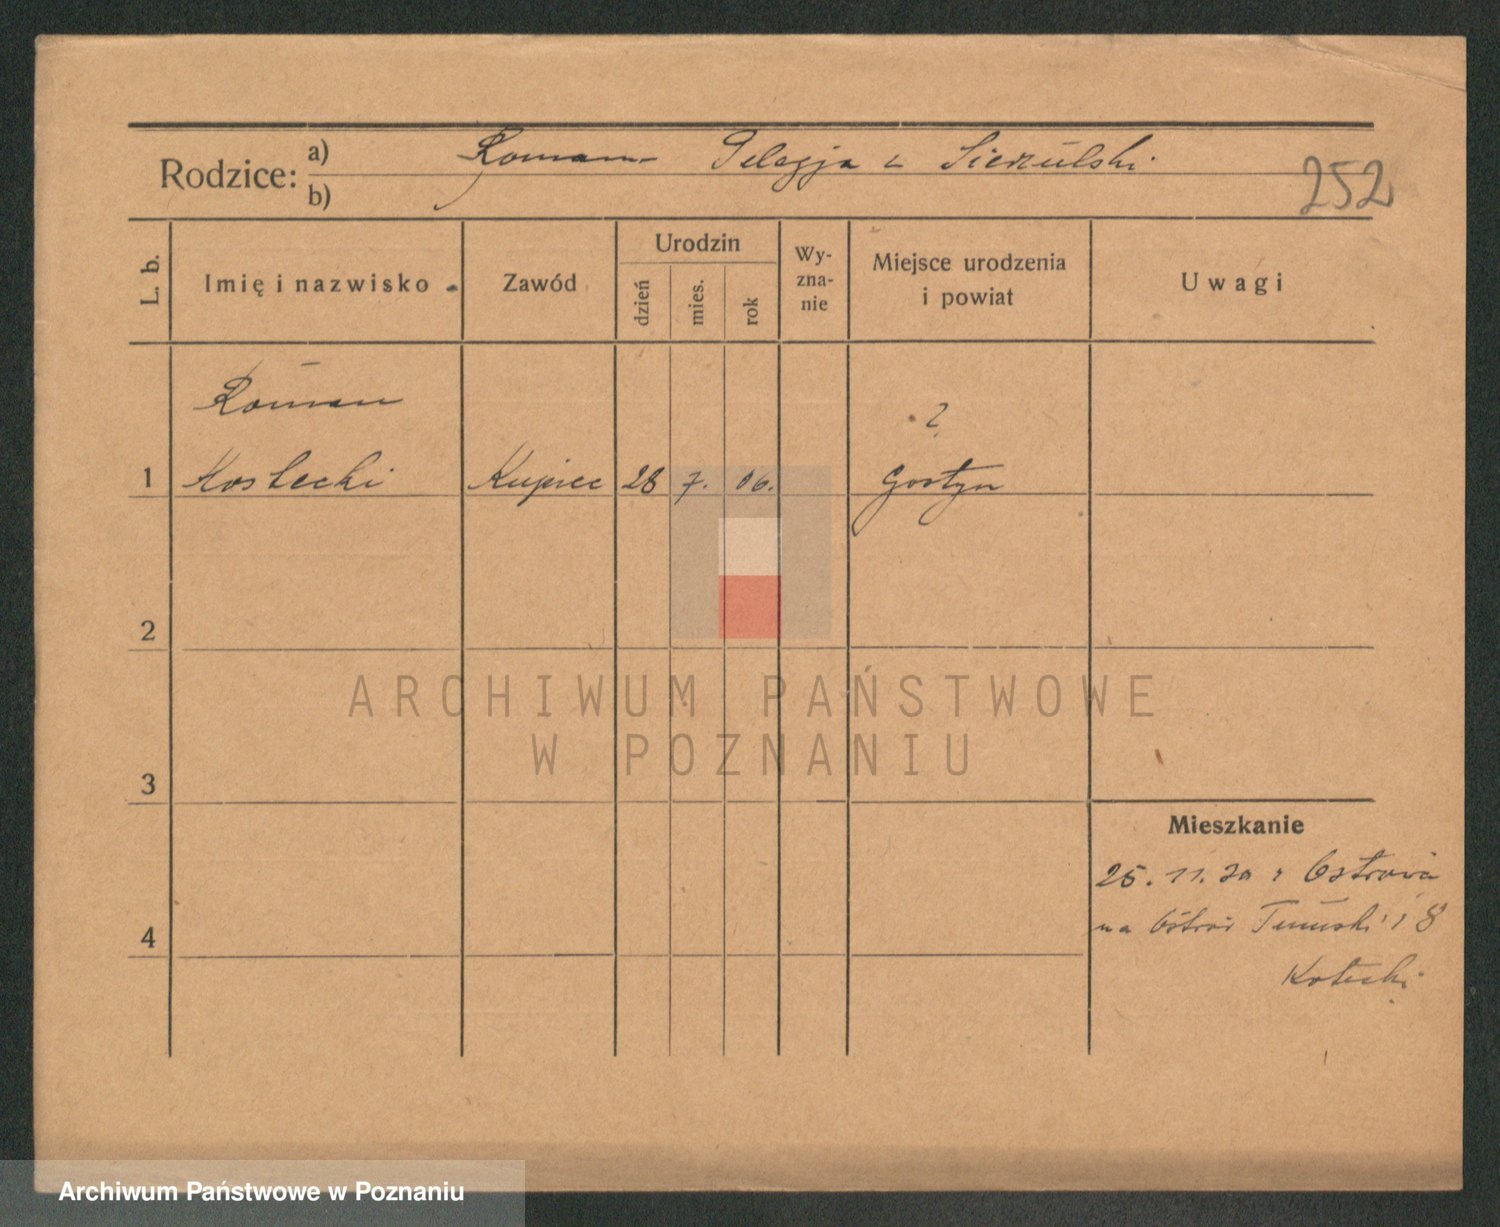 Rodzice:
a) Roman Pelagja z Sierzulski
b)
252
L. b.
Imię i nazwisko
Zawód
Urodzin
dzień
mies.
rok
Wy-
zna-
nie
Miejsce urodzenia
i powiat
Uwagi
Roman
?
1 Kostecki Kupiec 28 7. 06. Gostyn
2
3
4
Mieszkanie
25. 11. 30 z Ostrowa
na 8
Kotecki
ARCHIWUM PAŃSTWOWE
W POZNANIU
Archiwum Państwowe w Poznaniu